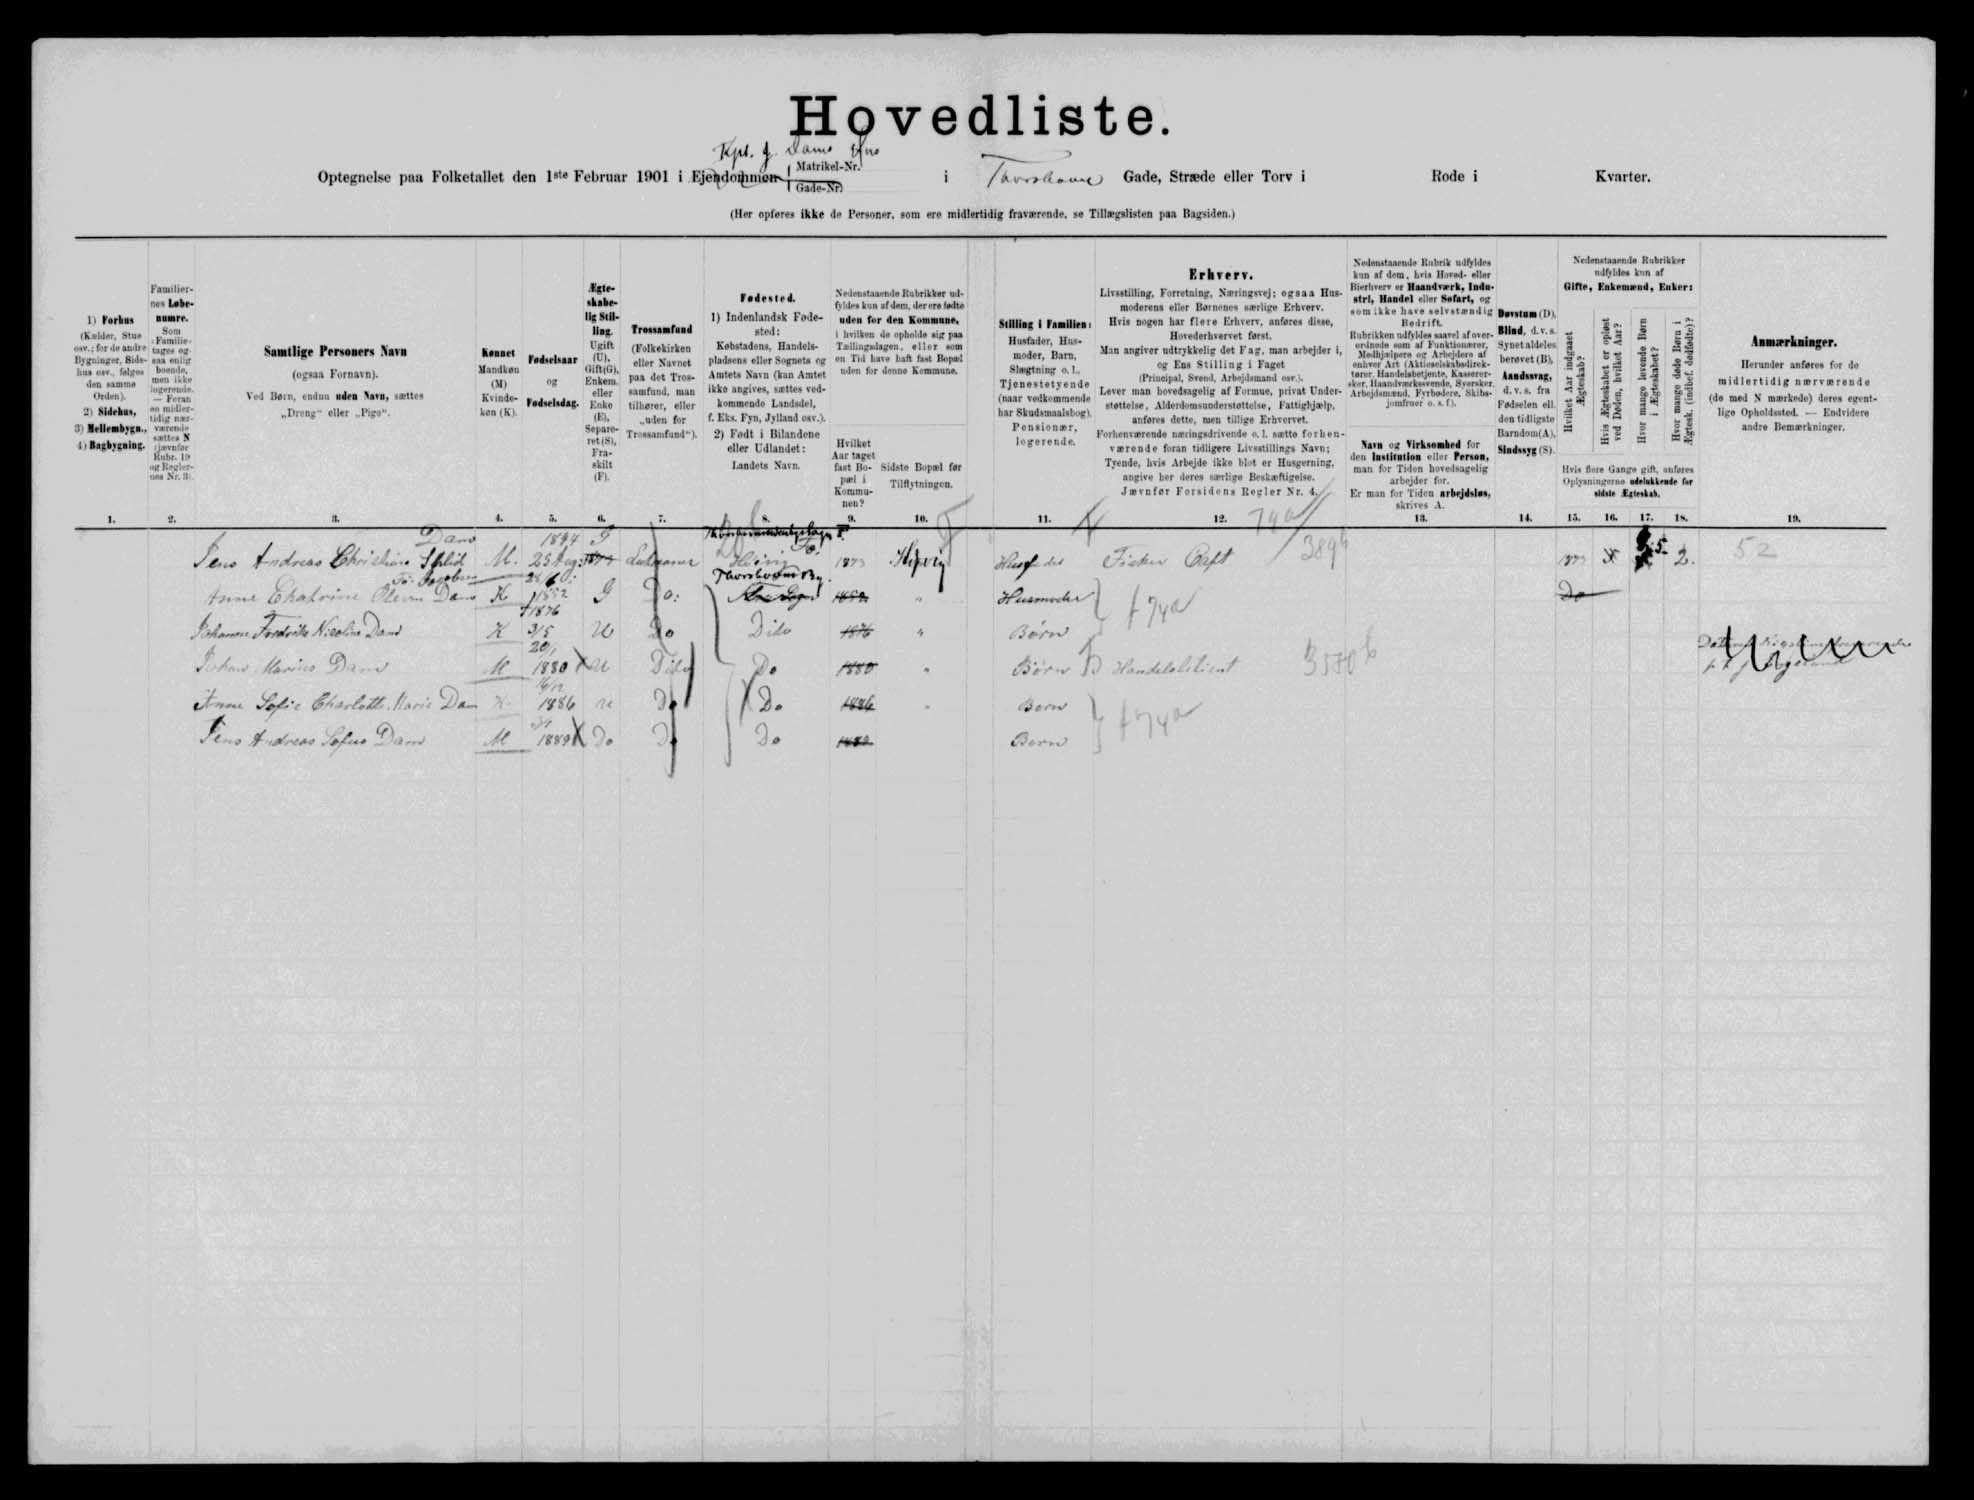 Hovedliste.
Kpt. J. Dams Hus
Optegnelse paa Folketallet den 1ste Februar 1901 i Ejendommen Matrikel-Nr. Gade-Nr. i Thorshavn Gade, Stræde eller Torv i Rode i Kvarter.
(Her opføres ikke de Personer, som ere midlertidig fraværende, se Tillægslisten paa Bagsiden.)
1) Forhus
(Kælder, Stue
osv.; for de andre
Bygninger, Side-
hus osv., følges
den samme
Orden).
2) Sidehus,
3) Mellembygn.,
4) Bagbygning.
Familier-
nes Løbe-
numre.
Som
Familie
tages og-
saa enlig
boende,
men ikke
logerende.
— Foran
en midler-
tidig nær-
værende
sættes N
(jævnfør
Rubr. 19
og Regler-
nes Nr. 3).
Samtlige Personers Navn
(ogsaa Fornavn).
Ved Børn, endnu uden Navn, sættes
„Dreng" eller „Pige".
Kønnet
Mandkøn
(M)
Kvinde-
køn (K).
Fødselsaar
og
Fødselsdag.
Ægte-
skabe-
lig Stil-
ling.
Ugift
(U),
Gift(G),
Enkem.
eller
Enke
(E),
Separe-
ret (S),
Fra-
skilt
(F).
Trossamfund
(Folkekirken
eller Navnet
paa det Tros-
samfund, man
tilhører, eller
„uden for
Trossamfund").
Fødested.
1) Indenlandsk Føde-
sted:
Købstadens, Handels-
pladsens eller Sognets og
Amtets Navn (kan Amtet
ikke angives, sættes ved-
kommende Landsdel,
f. Eks. Fyn, Jylland osv.).
2) Født i Bilandene
eller Udlandet:
Landets Navn.
Nedenstaaende Rubrikker ud-
fyldes kun af dem, der ere fødte
uden for den Kommune,
i hvilken de opholde sig paa
Tællingsdagen, eller som
en Tid have haft fast Bopæl
uden for denne Kommune.
Hvilket
Aar taget
fast Bo-
pæl i
Kommu-
nen?
Sidste Bopæl før
Tilflytningen.
Stilling i Familien:
Husfader, Hus-
moder, Barn,
Slægtning o. l.,
Tjenestetyende
(naar vedkommende
har Skudsmaalsbog),
Pensionær,
logerende.
Erhverv.
Livsstilling, Forretning, Næringsvej; ogsaa Hus-
moderens eller Børnenes særlige Erhverv.
Hvis nogen har flere Erhverv, anføres disse,
Hovederhvervet først.
Man angiver udtrykkelig det Fag, man arbejder i,
og Ens Stilling i Faget
(Principal, Svend, Arbejdsmand osv.).
Lever man hovedsagelig af Formue, privat Under-
støttelse, Alderdomsunderstøttelse, Fattighjælp,
anføres dette, men tillige Erhvervet.
Forhenværende næringsdrivende o. l. sætte forhen-
værende foran tidligere Livsstillings Navn;
Tyende, hvis Arbejde ikke blot er Husgerning,
angive her deres særlige Beskæftigelse.
Jævnfør Forsidens Regler Nr. 4.
Nedenstaaende Rubrik udfyldes
kun af dem, hvis Hoved- eller
Bierhverv er Haandværk, Indu-
stri, Handel eller Søfart, og
som ikke have selvstændig
Bedrift.
Rubrikken udfyldes saavel af over-
ordnede som af Funktionærer,
Medhjælpere og Arbejdere af
enhver Art (Aktieselskabsdirek-
tører, Handelsbetjente, Kasserer-
sker, Haandværkssvende, Syersker,
Arbejdsmænd, Fyrbødere, Skibs-
jomfruer o. s. f.).
Navn og Virksomhed for
den Institution eller Person,
man for Tiden hovedsagelig
arbejder for.
Er man for Tiden arbejdsløs,
skrives A.
Døvstum (D),
Blind, d. v. s.
Synet aldeles
berøvet (B),
Aandssvag,
d. v. s. fra
Fødselen ell.
den tidligste
Barndom(A),
Sindssyg (S).
Nedenstaaende Rubrikker
udfyldes kun af
Gifte, Enkemænd, Enker:
Hvilket Aar indgaaet
Ægteskab?
Hvis Ægteskabet er opløst
ved Døden, hvilket Aar?
Hvor mange levende Børn
i Ægteskabet?
Hvor mange døde Børn i
Ægtesk. (indbef. dødfødte)?
Hvis flere Gange gift, anføres
Oplysningerne udelukkende for
sidste Ægteskab.
Anmærkninger.
Herunder anføres for de
midlertidig nærværende
(de med N mærkede) deres egent-
lige Opholdssted. — Endvidere
andre Bemærkninger.
1. 2. 3. 4. 5. 6. 7. 8. 9. 10. 11. 12. 13. 14. 15. 16. 17. 18. 19.
Dam 1844 G 74a
Jens Andreas Christian M. 25 Aug: Lutheraner 1873 Husfader Fisker 389b 1873 5 2. 52
Thorshavn By
Anne Ekatrine Olevin Dam K 1852 G Do: 1852 " Husmoder Do
1876 f 74a
Johanne Fredrikke Nicoline Dam K 3/5 U Do Dito 1876 " Børn
20/1
Johan Marius Dam M 1880 U Dito Do 1880 " Børn Handelsbetient 3570b
16/12
Anne Sofie Charlotte Marie Dam K 1886 U Do Do 1886 " Børn
f 74a
Jens Andreas Sofus Dam M 1889 Do Do Do 1889 Børn